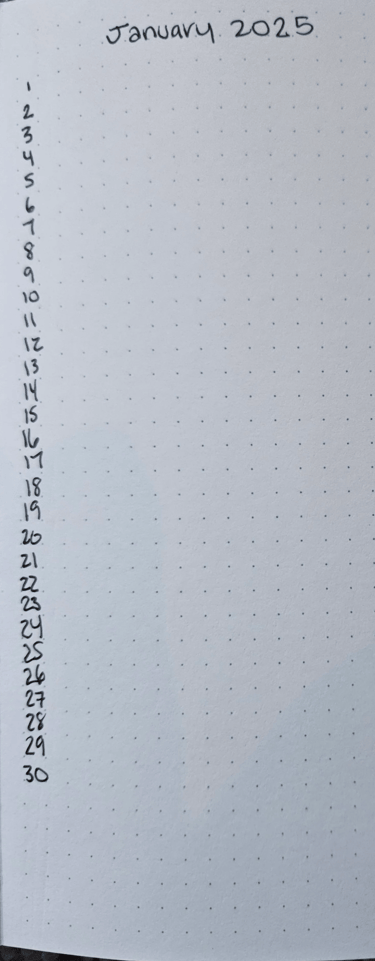 January 2025
1
2
3
4
5
6
7
8
9
10
11
12
13
14
15
16
17
18
19
20
21
22
23
24
25
26
27
28
29
30